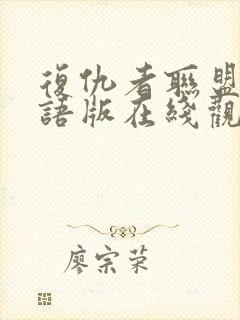 復仇者聯盟
語版在綫觀
廖宗荣